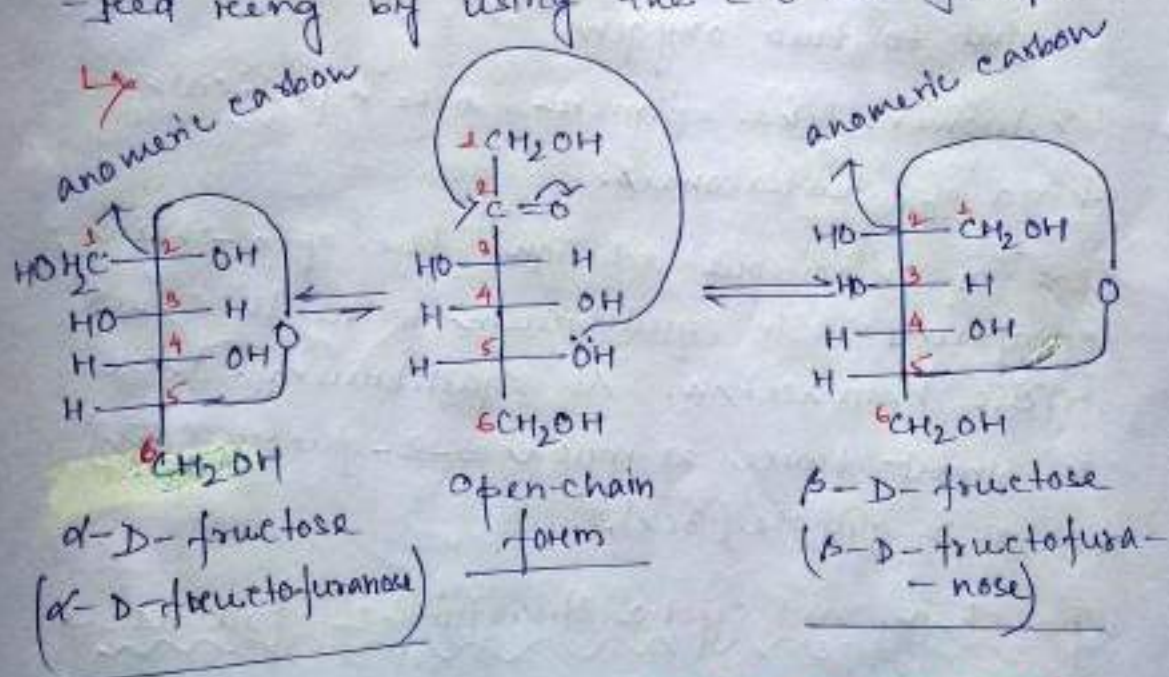 -fied ring by using the
anomeric carbon
HOH₂C 1 2 OH
HO 3 H
H 4 OH O
H 5
6 CH₂OH
α-D-fructose
(α-D-fructofuranose)
1 CH₂OH
2 C=O
HO 3 H
H 4 OH
H 5 ÖH
6CH₂OH
Open-chain
form
anomeric carbon
HO 2 1 CH₂OH
HO 3 H O
H 4 OH
H 5
6CH₂OH
β-D-fructose
(β-D-fructofura-
-nose)